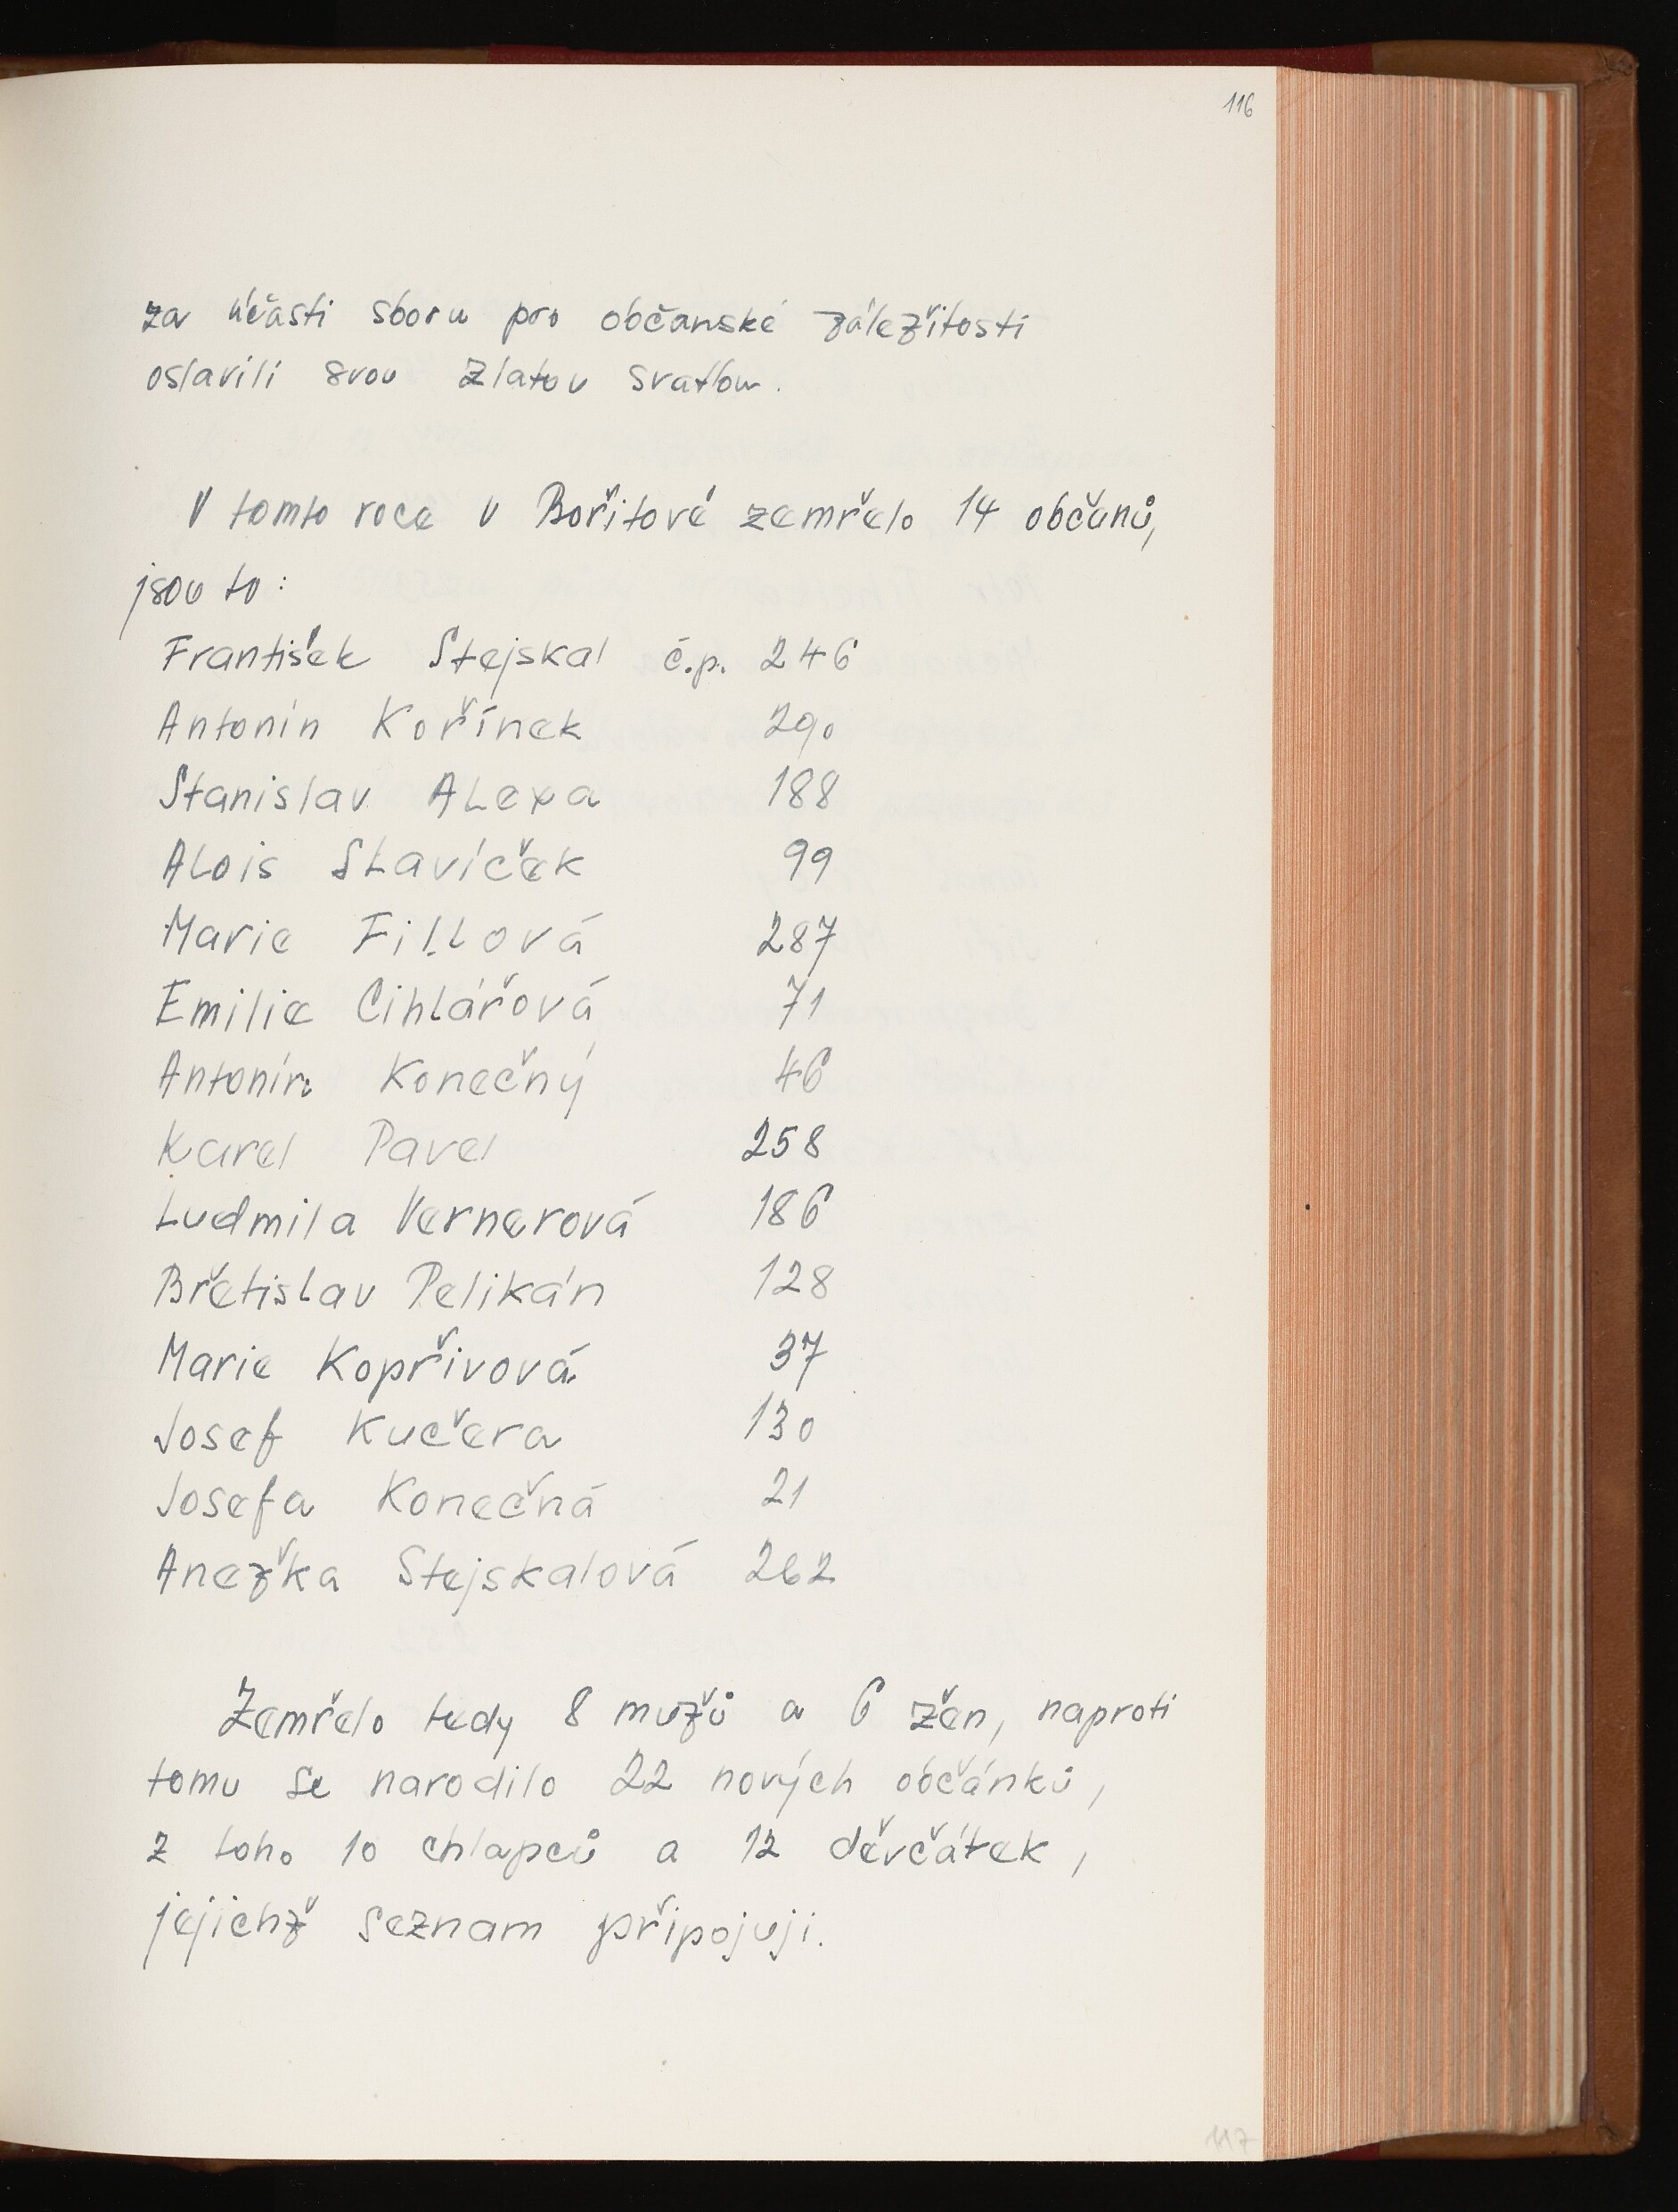 116
za účasti sboru pro občanské záležitosti
oslavili svou zlatou svatbu.
V tomto roce v Bořitově zemřelo 14 občanů,
jsou to:
František Stejskal č.p. 246
Antonín Kořínek 290
Stanislav Alexa 188
Alois Slavíček 99
Marie Fillová 287
Emilie Cihlářová 71
Antonín Konečný 46
Karel Pavel 258
Ludmila Vernerová 186
Břetislav Pelikán 128
Marie Kopřivová 37
Josef Kučera 130
Josefa Konečná 21
Anežka Stejskalová 262
Zemřelo tedy 8 mužů a 6 žen, naproti
tomu se narodilo 22 nových občánků,
z toho 10 chlapců a 12 děvčátek,
jejichž seznam připojuji.
117